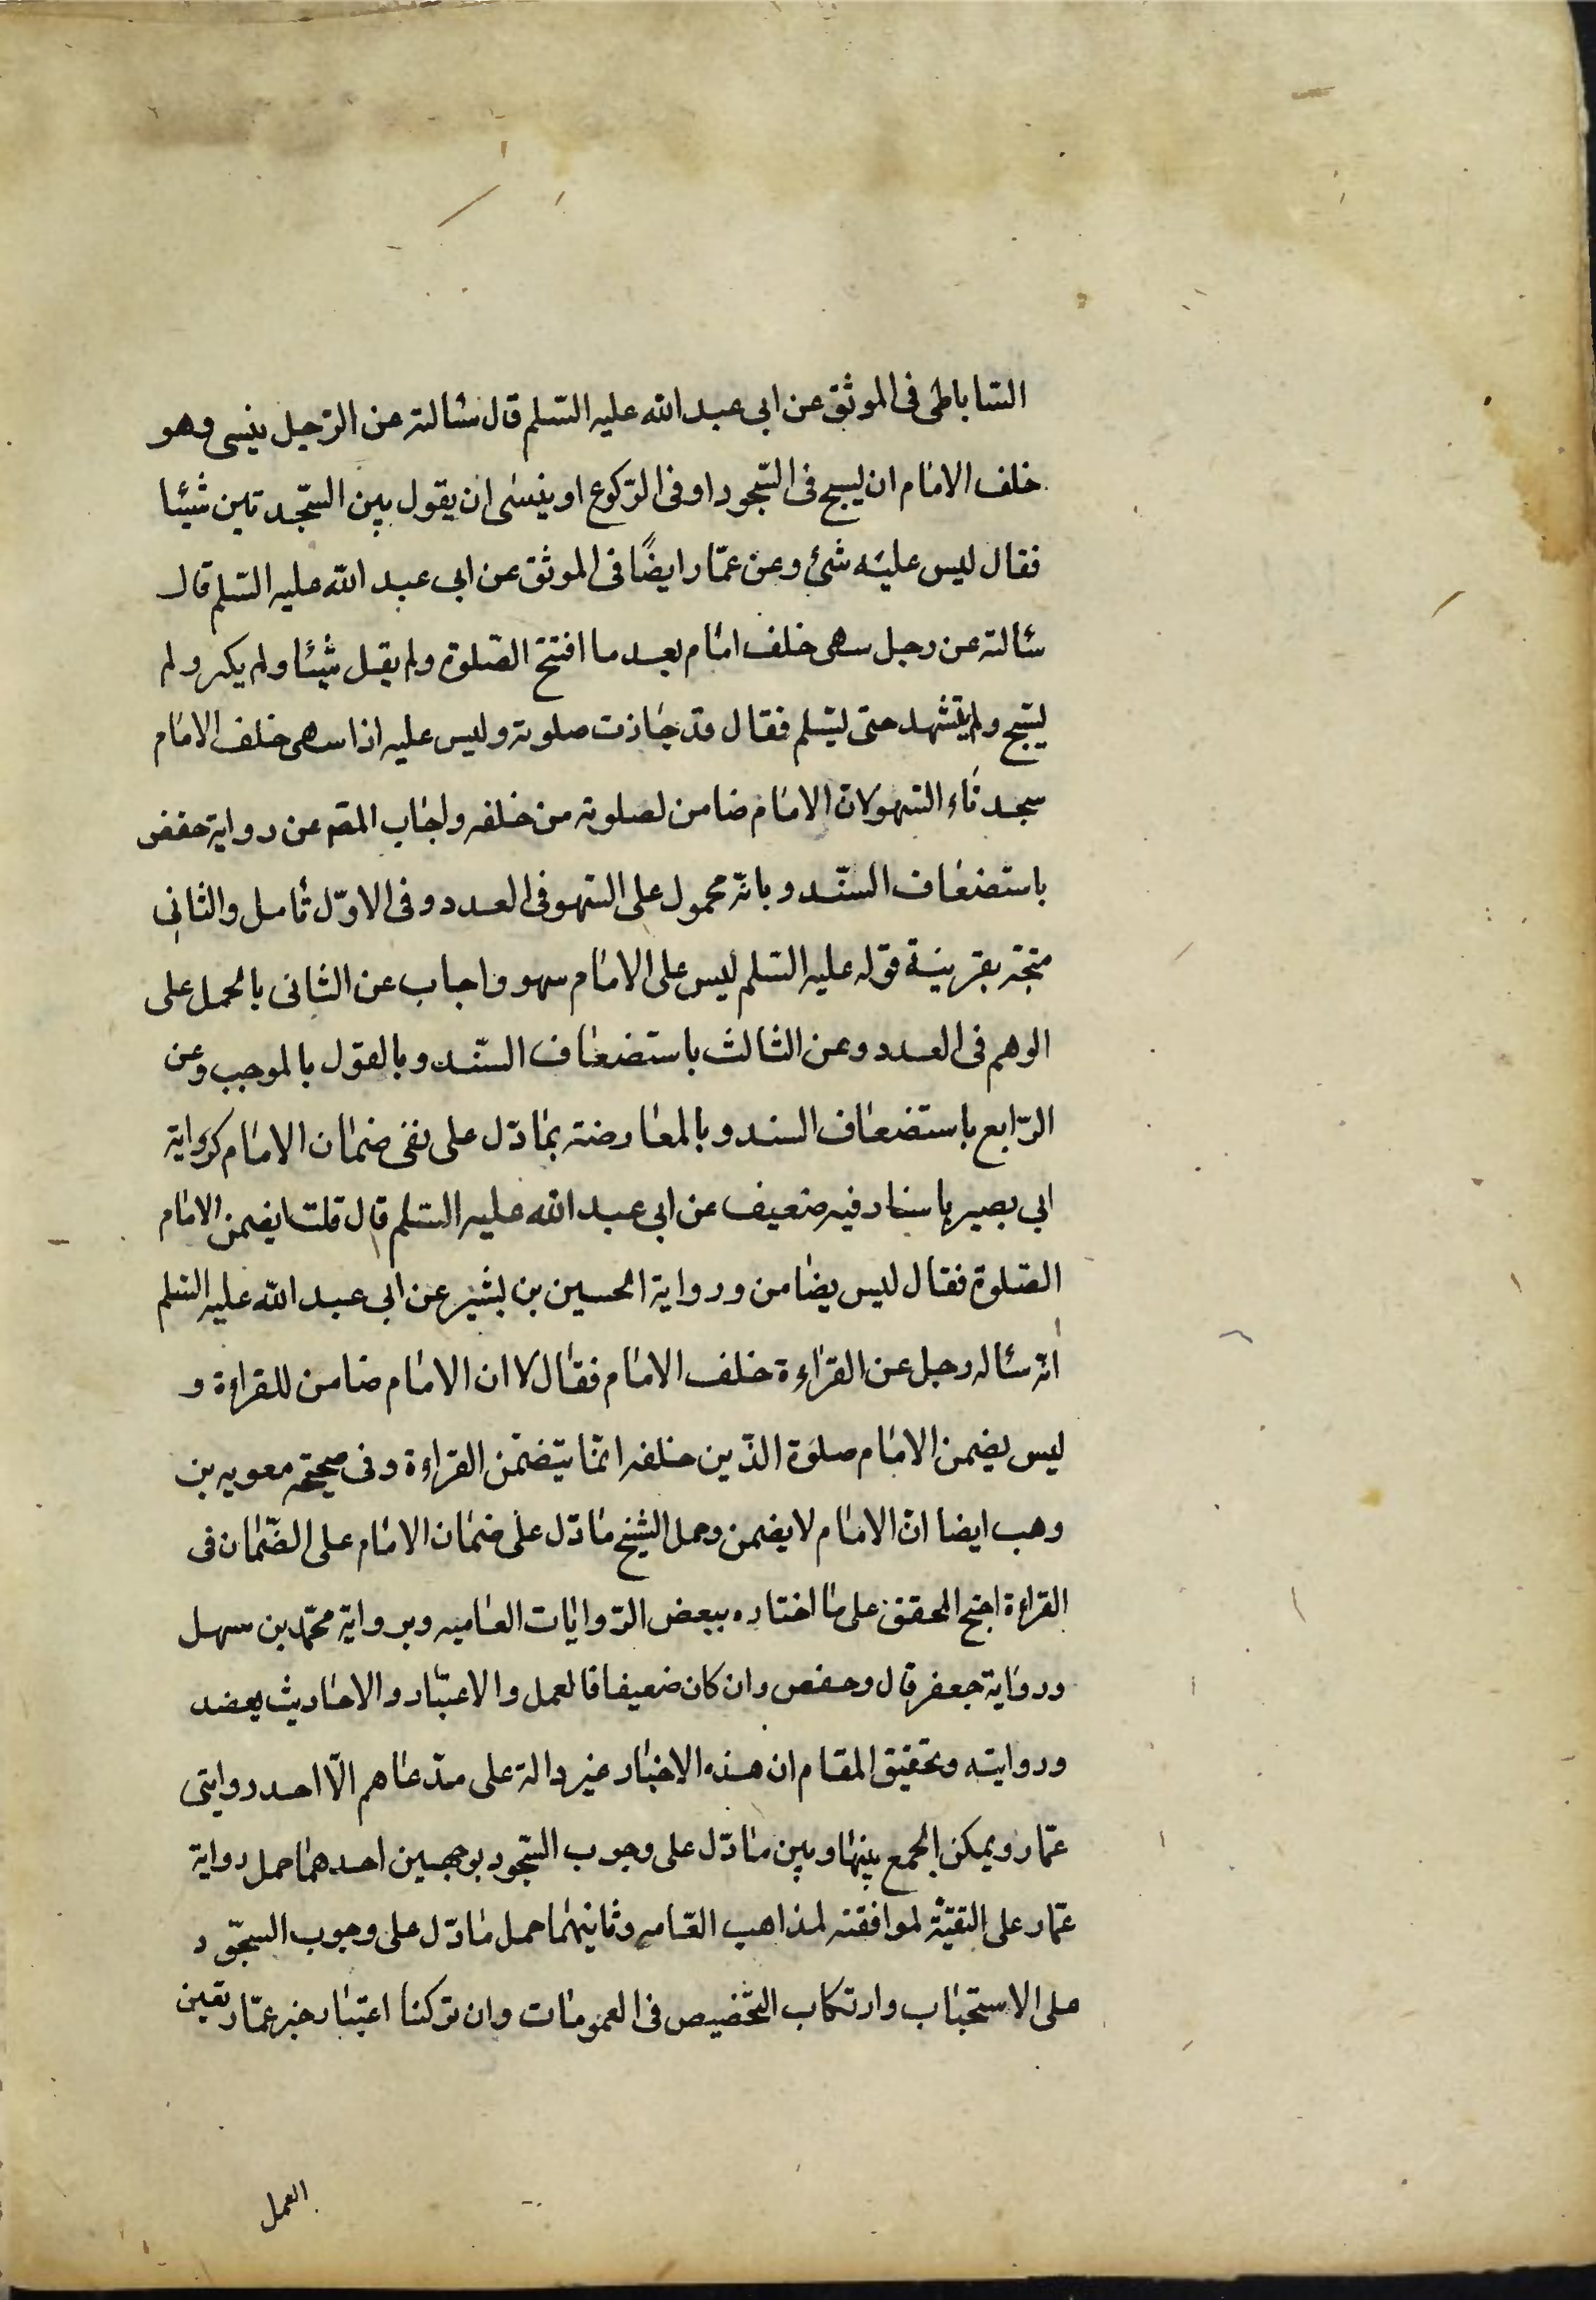 الساباطى فى الموثق عن ابى عبد الله عليه السلم قال سئالته عن الرّجل ينسى وهو
خلف الامام ان يسبح فى السّجود او فى الرّكوع او ينسى ان يقول بين السّجدتين شيئا
فقال ليس عليه شئ وعن عمّار ايضًا فى الموثق عن ابى عبد الله عليه السّلم قال
سئالته عن رجل سهى خلف امام بعد ما افتتح الصّلوة ولم يقل شيئا ولم يكبر ولم
يسبّح ولم يتشهد حتى يسّلم فقال قد جازت صلوته وليس عليه اذا سهى خلف الامام
سجدتاء السّهو لانّ الامام ضامن لصلوته من خلفه واجاب المصم عن رواية حفص
باستضعاف السنّد وبانّه محمول على السّهو فى العدد وفى الاوّل تأمل والثانى
متجّه بقرينة قوله عليه السّلم ليس على الامام سهو واجاب عن الثانى بالحمل على
الوهم فى العدد وعن الثالث باستضعاف السنّد وبالقول بالموجب وعن
الرّابع باستضعاف السند وبالمعارضته بما دّل على نفى ضمان الامام كرواية
ابي بصير باسناد فيه ضعيف عن ابى عبد الله عليه السّلم قال قلت ايضمن الامام
الصّلوة فقال ليس بضامن ورواية الحسين بن بشير عن ابى عبد الله عليه السّلم
انّه سئاله رجل عن القراءة خلف الامام فقال لا ان الامام ضامن للقراءة و
ليس يضمن الامام صلوة الذّين خلفه انمّا يتضمّن القراءة وفى صحيحة معويه بن
وهب ايضا انّ الامام لا يضمن وحمل الشيخ ما دّل على ضمان الامام على الضّمان فى
القراءة احتج المحقق على ما اختاره ببعض الرّوايات العاميه وبرواية محمّد بن سهل
ورواية جعفر قال وحفص وان كان ضعيفا فالعمل والاعتبار والاحاديث يعضد
وروايته وتحقيق المقام ان هذه الاخبار غير دالة على مدّعاهم الّا احد روايتى
عمّار ويمكن الجمع بينها وبين ما دّل على وجوب السّجود بوجهين احدهما حمل رواية
عمّار على التقيّة لموافقته لمذاهب العّامه وثانيهما حمل ما دّل على وجوب السجّود
على الاستحباب وارتكاب التّخصيص فى العمومات وان تركنا اعتبار خبر عمّار تعين
العمل